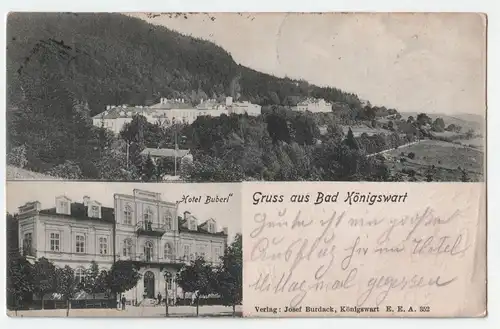 "Hotel Buberl"
Gruss aus Bad Königswart
Heute ist ein großer
Ausflug hier im Hotel
Mittag mal gegessen
Verlag: Josef Burdack, Königswart E. E. A. 252